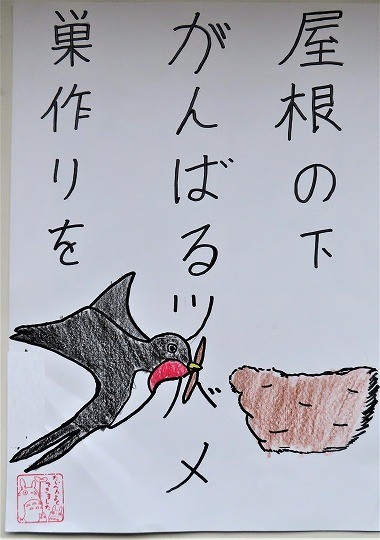 屋根の下
がんばるツバメ
巣作りを